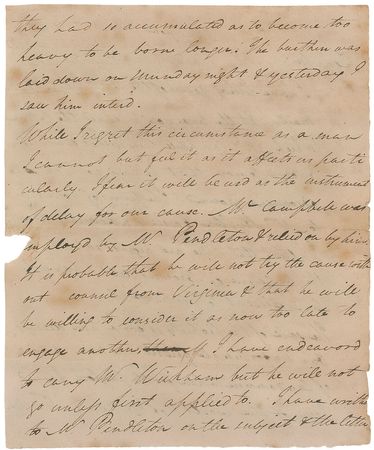 they had so accumulated as to become too
heavy to be borne longer. The burthen was
laid down on Munday night & yesterday I
saw him interd.
While I regret this circumstance as a man
I cannot but feel it as it affects us parti
cularly. I fear it will be used as the instrument
of delay for our cause. Mr. Campbell was
employd by Mr. Pendleton & relied on by him.
It is probable that he will not try the cause with
out counsel from Virginia & that he will
be willing to consider it as now too late to
engage another. I have endeavord
to carry Mr. Wickham but he will not
go unless first applied to. I have written
to Mr Pendleton on the subject & the letter